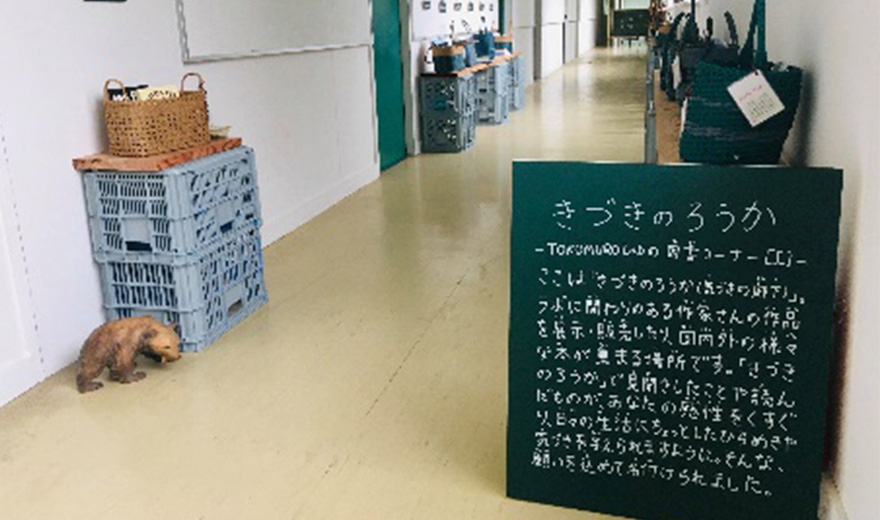 きづきのろうか
-TOKOMURO Labの 図書コーナー
ここは「きづきのろうか(気づきの廊下)」。
ラボに関わりのある作家さんの作品
を展示・販売したり、国内外の様々
な本が集まる場所です。「きづき
のろうか」で見聞きしたことや読ん
だものが、あなたの感性をくすぐ
り、日々の生活にちょっとしたひらめきや
気づきを与えられますように。そんな、
願いを込めて名付けられました。